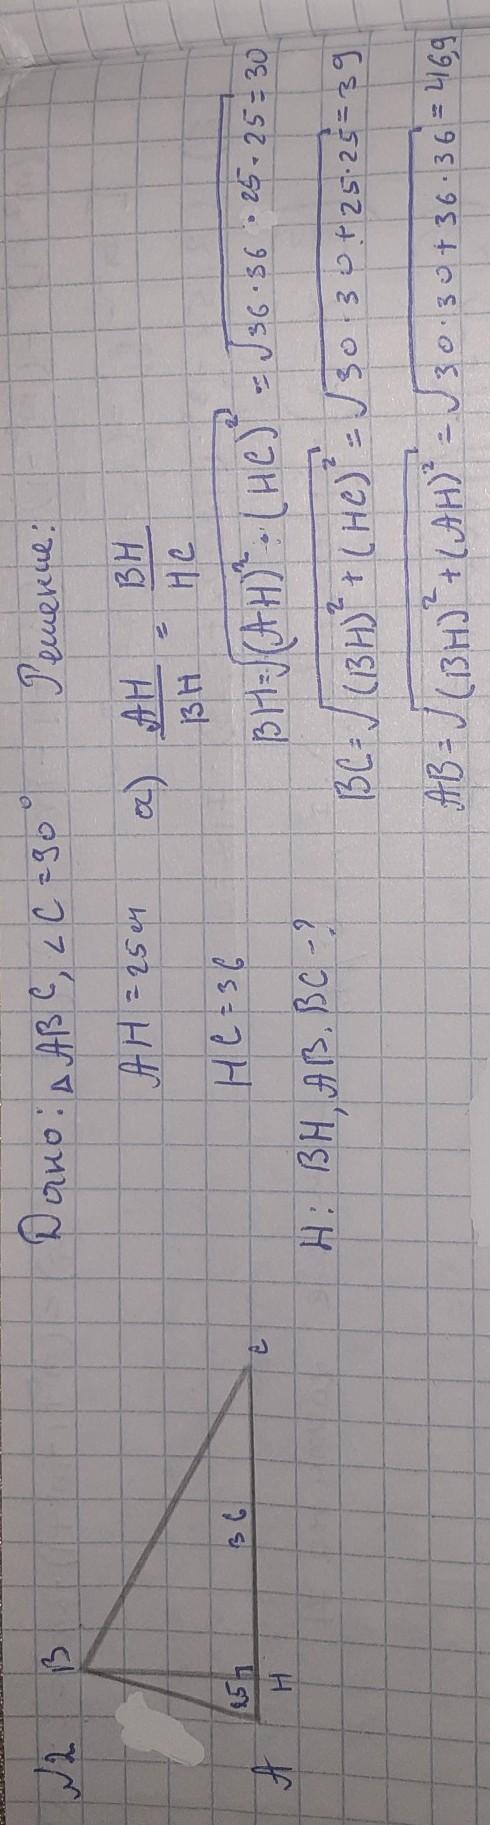 №2
B
25
36
A
H
C
Дано: △ABC, ∠C=90°
AH=25см
HC=36
Н: BH, AB, BC-?
Решение:
а) AH/BH = BH/HC
BH=√(AH)²·(HC)² = √36·36·25·25=30
BC=√(BH)²+(HC)² = √30·30+25·25=39
AB=√(BH)²+(AH)² = √30·30+36·36=46,9